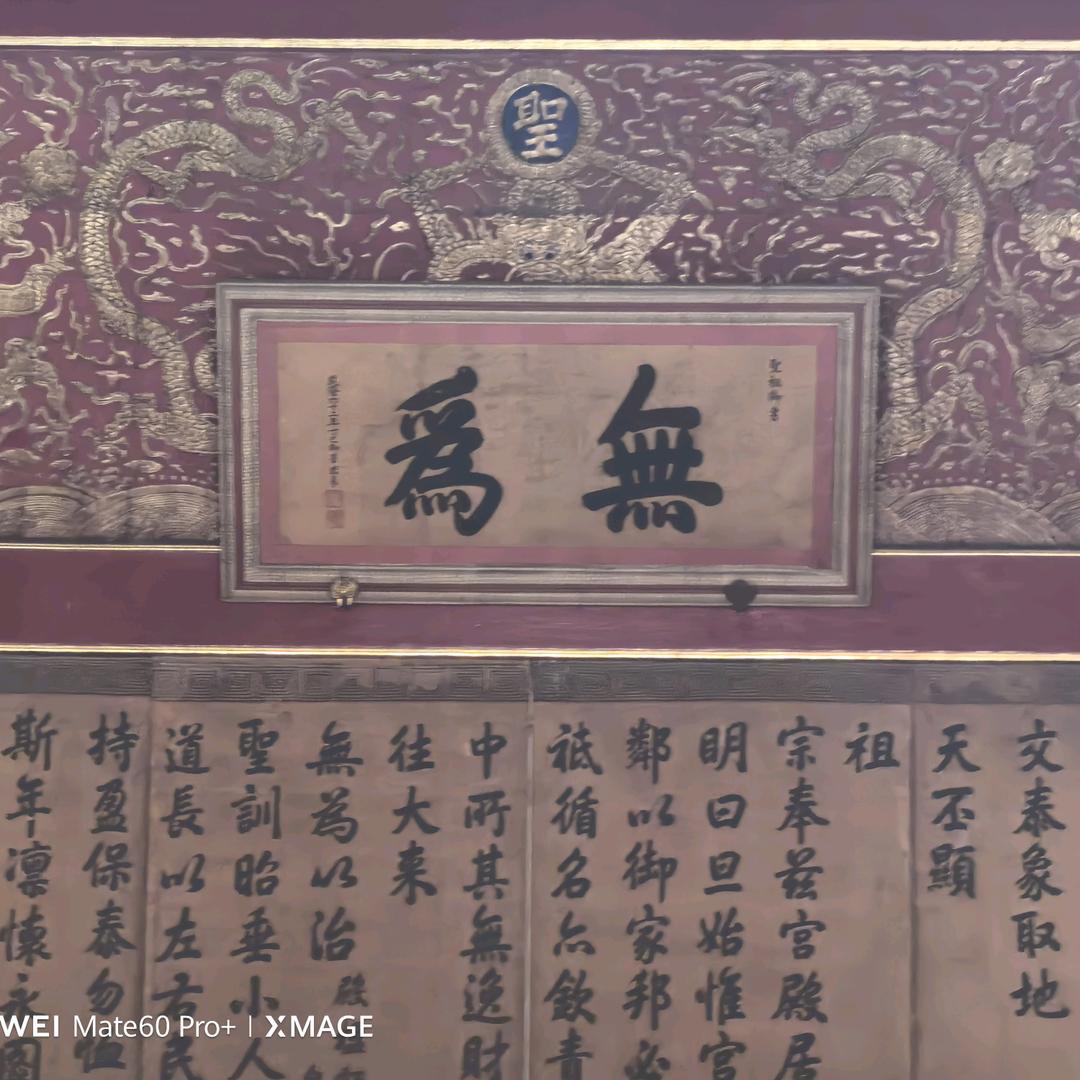 聖
無為
聖祖御書
文泰象取地
天丕顯
祖
宗奉茲宮殿居
明曰旦始惟宮
鄰以御家邦必
祗循名亦欽青
中所其無逸財
往大来
無為以治
殿
聖訓昭垂小人
道長以左右民
持盈保泰勿恒
斯年凜懷永圖
WEI Mate60 Pro+ | XMAGE